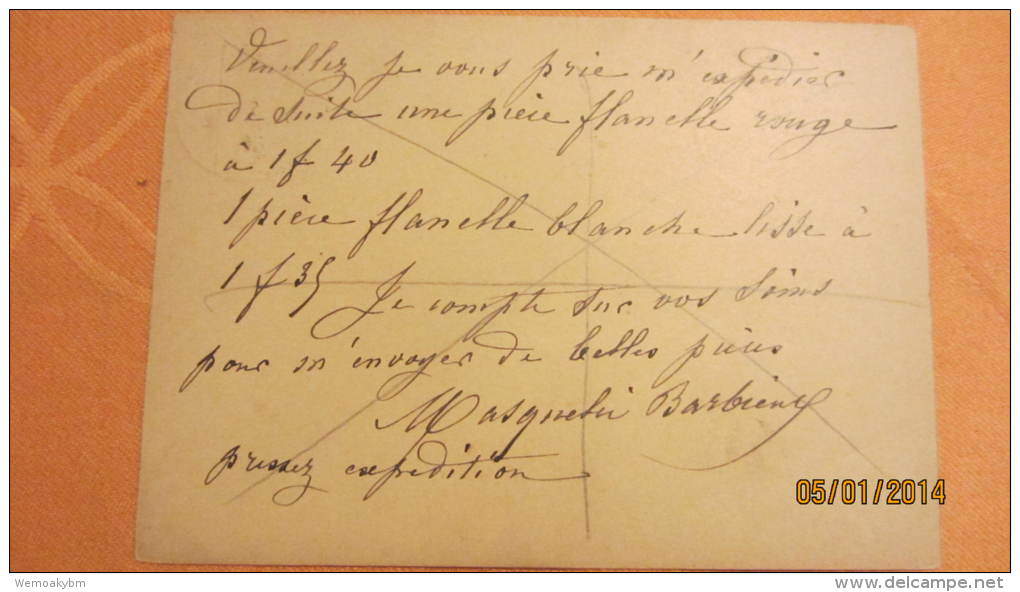 Veuillez je vous prie m'expédier
de suite une pièce flanelle rouge
à 1 f 40
1 pièce flanelle blanche lisse à
1 f 35 Je compte sur vos soins
pour m'envoyer de belles pièces
Barbieux
pressez expédition
05/01/2014
Wemoakybm
www.delcampe.net